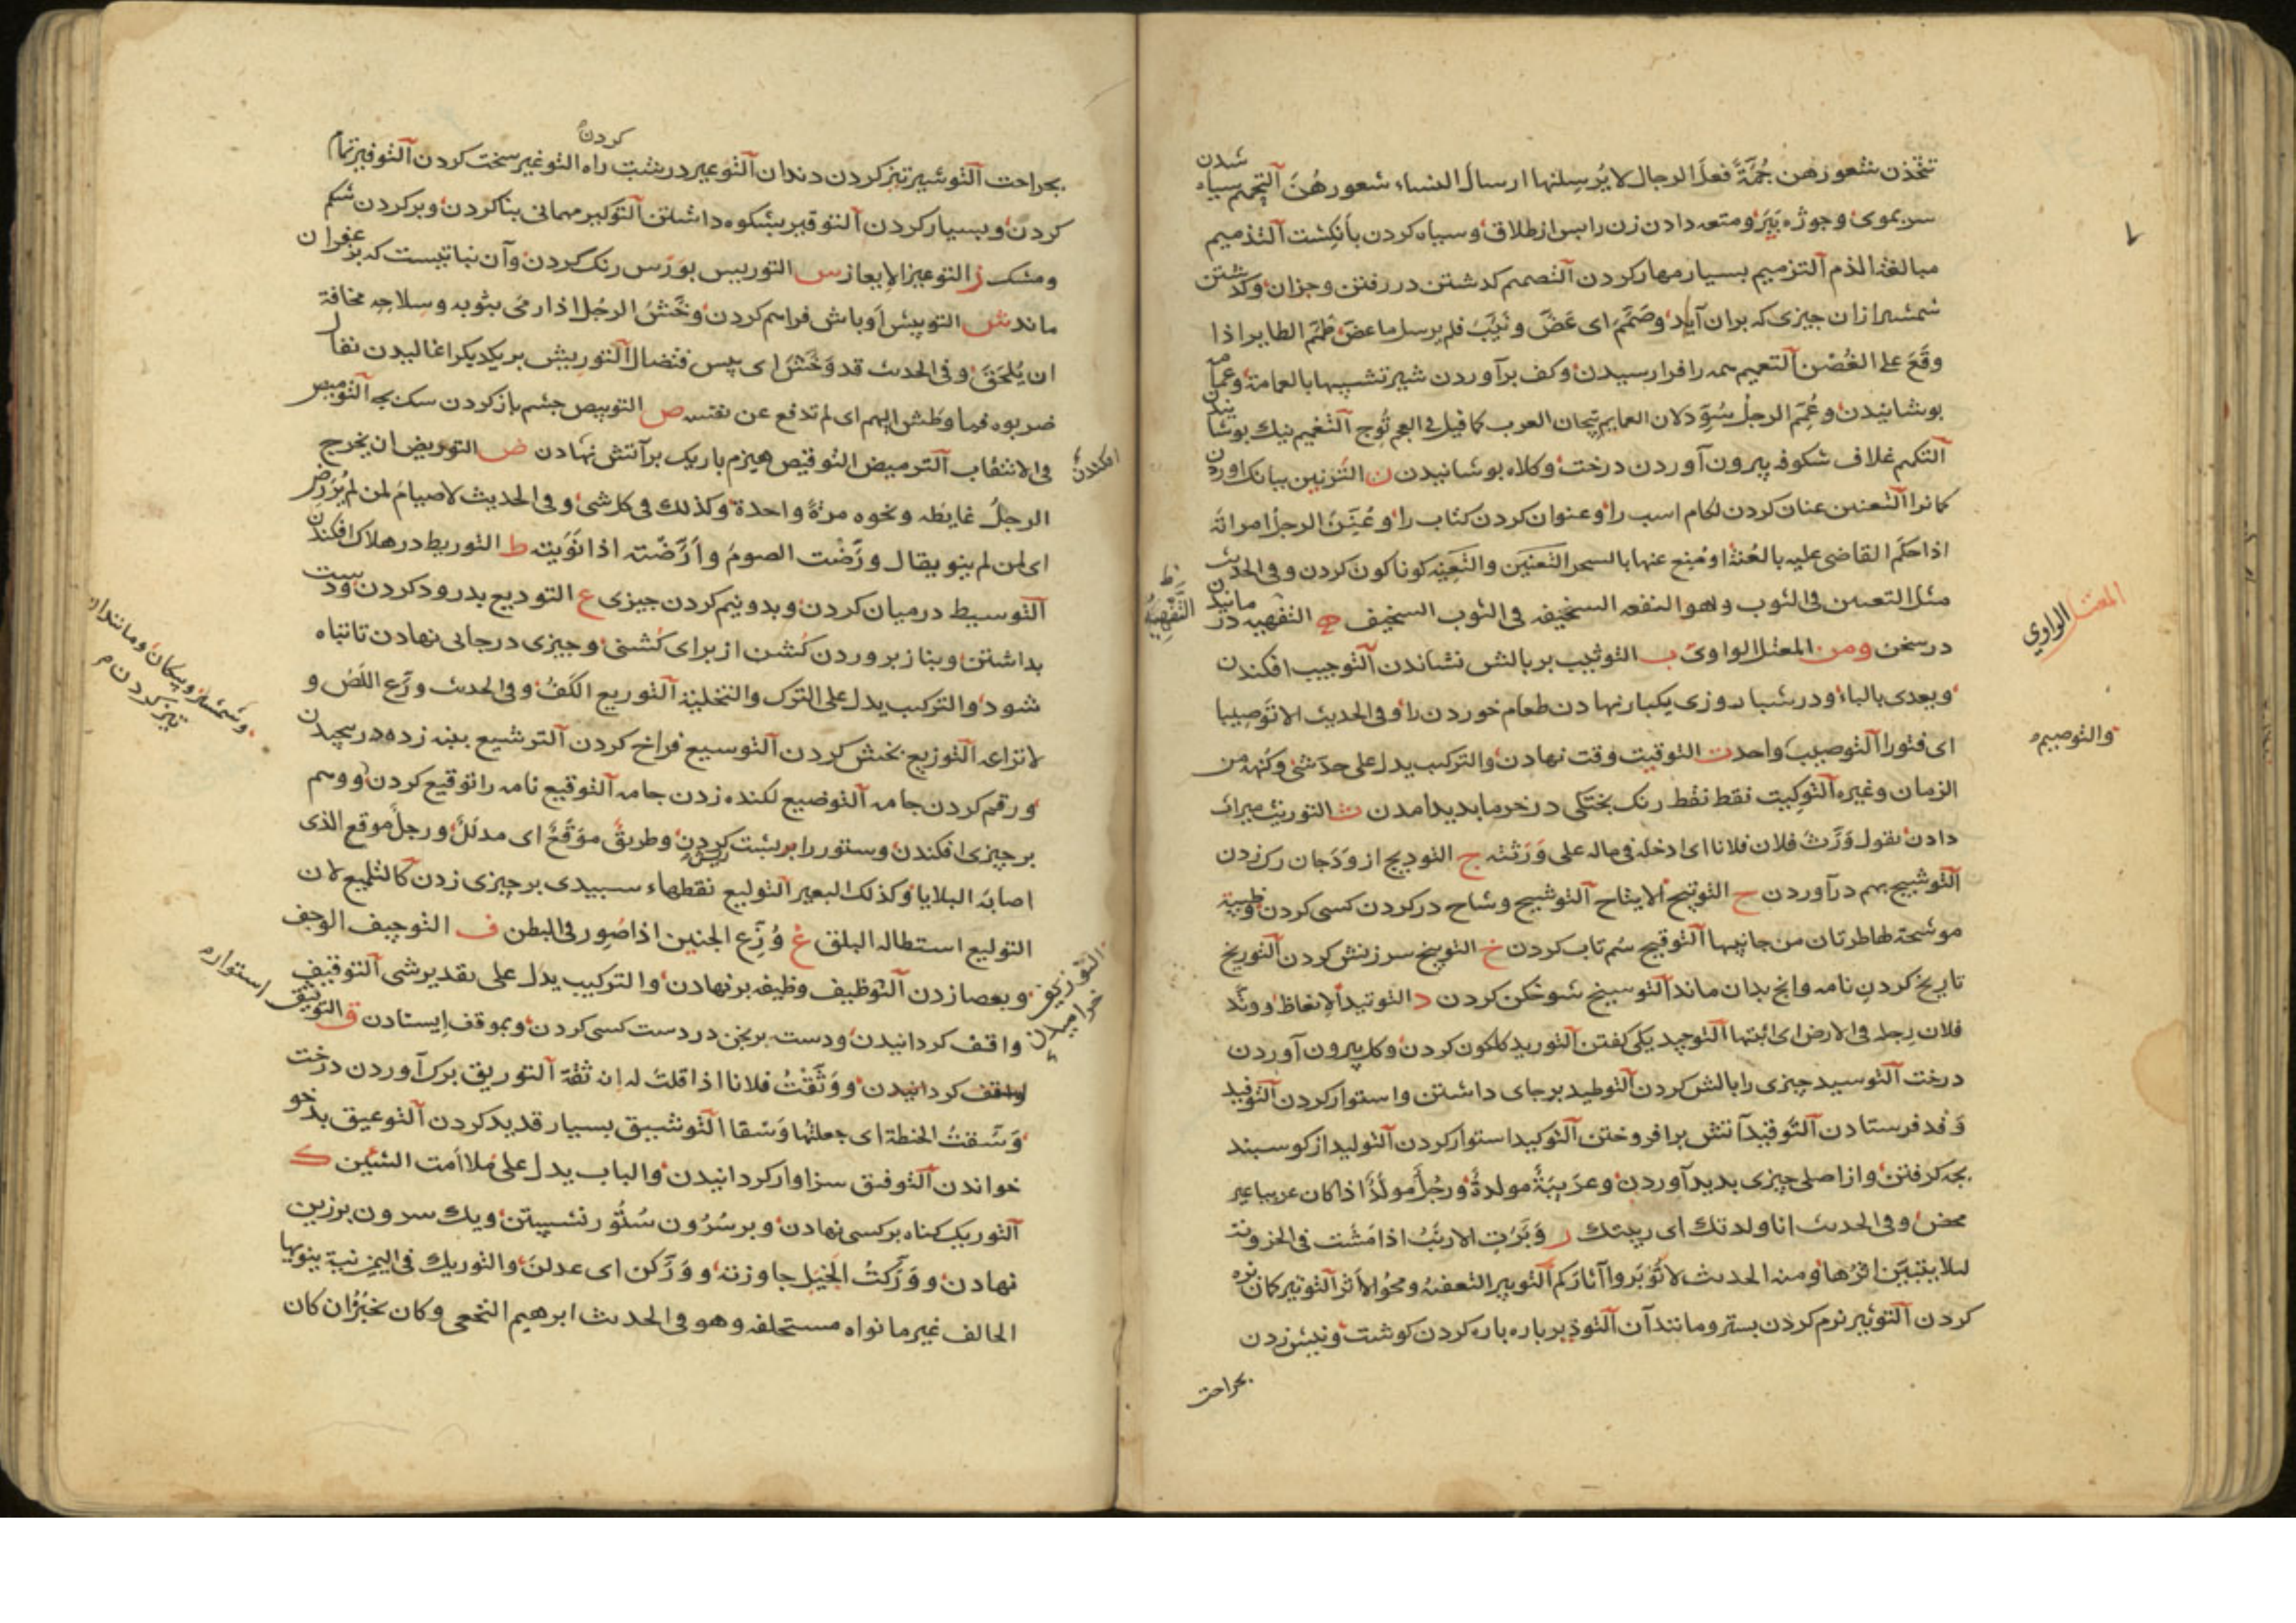 تتخذن شعورهن جُمَّةً فعلَ الرجال لا يُرسِلنها ارسال النساء شعورهُنَّ التحمیم سیاه شدن
سر بموی وجوژه بپر ومتعه دادن زن را پس از طلاق وسیاه کردن بانکشت التذمیم
مبالغة الذم التزمیم بسیار مهار کردن التصمیم کدشتن در رفتن وجزان وکدشتن
شمشیر ازان جیزی که بران آید وصَمَّمَ ای عَضَّ ونَیَّبَ فلم یرسل ما عضّ طَمَّمَ الطایر اذا
وقَعَ علی الغُصْن التعمیم همه را فرا رسیدن وکف برآوردن شیر تشبیها بالعمامة وعمامه
بوشانیدن وعُمِّمَ الرجلُ سُوِّدَ لان العمایم تیجان العرب کما قیل فی العجم تُوِّج التغمیم نیك بوشانیدن
التکمیم غلاف شکوفه بیرون آوردن درخت وکلاه بوشانیدن ن الترنین ببانک اوردن
کمانرا التعنین عنان کردن لکام اسب را وعنوان کردن کتاب را وعُنِّنَ الرجلُ امراته
اذا حکم القاضی علیه بالعُنة او مُنِع عنها بالسحر التعنین والتعینه کوناکون کردن وفی الحدیث
مثل التعنین فی الثوب وهو البقعه السخیفه فی الثوب السخیف ه التفهیه در مانیدن
در سخن ومن المعتل الواوی ب التوثیب بر بالش نشاندن التوجیب افکندن
ویعدی بالباء ودر شبا روزی یکبار نهادن طعام خوردن را وفی الحدیث الا توصیبا
ای فتورا التوصیب واحد ت التوقیت وقت نهادن والترکیب یدل علی حد شئ وکنهه من
الزمان وغیره التوکیت نقط نقط رنک بختکی در خرما بدید امدن ث التوریث میراث
دادن تقول وَرَّثَ فلان فلانا ای ادخله فی ماله علی وَرَثته ج التودیج از وَدَجان رک زدن
التوشیج بهم درآوردن ح التوتیح الایتاح التوشیح وشاح در کردن کسی کردن وظبیة
موشحة لها طرتان من جانبیها التوقیح سُم تاب کردن خ التوبیخ سرزنش کردن التوریخ
تاریخ کردنِ نامه وانج بدان ماند التوسیخ شوخکن کردن د التوتید الانعاظ ووتّد
فلان رِجله فی الارض ای اثبتها التوحید یکی کفتن التورید کلکون کردن وکل بیرون آوردن
درخت التوسید چیزی را بالش کردن التوطید برجای داشتن واستوار کردن التوفید
وَفد فرستادن التوقید آتش برافروختن التوکید استوار کردن التولید از کوسبند
بجه کرفتن واز اصلی چیزی بدید آوردن وعرَبیّةٌ مولدةٌ ورجُلٌ مولَّدٌ اذا کان عربیا غیر
محض وفی الحدیث انا ولدتك ای ربیتك ر وَبَّرتِ الارنَبُ اذا مَشَت فی الحزونة
لیلا یتبیّن اثرُها ومنه الحدیث لا تُوَبِّروا آثارَکم التوبیر التعفیةُ ومحو الاثر التوتیر کمان بزه
کردن التوثیر نرم کردن بستر ومانند آن التوذیر باره باره کردن کوشت ونیش زدن
بجراحت
المعتل الواوي
والتوصیم
التَّفْهِیَهُ
بجراحت التوشیر تیز کردن دندان التوعیر درشت راه التوغیر سخت کردن التوفیر تمام کردن
کردن وبسیار کردن التوقیر بشکوه داشتن التوکیر مهمانی بنا کردن وبر کردن شکم
ومشک ز التوعیز الایعاز س التوریس بورَس رنک کردن وآن نباتیست که بزعفران
ماند ش التوبیش اَوباش فراهم کردن وخَّشَ الرجُل اذا رمی بثوبه وسلاحه مخافة
ان یُلحَقَ وفی الحدیث قد وَخَّشَ ای یبس فتضاال التوریش بر یکدیکر اغالیدن نقال
ضربوه فما وطّش الیهم ای لم تدفع عن نفسه ص التوبیص جشم باز کردن سک بجه التوصیص
فی الانتقاب الترمیض التوقیص هیزم باریک بر آتش نهادن ض التوریض ان یخرج
الرجلُ غایطه ونحوه مرّةً واحدة وکذلك فی کل شئ وفی الحدیث لاصیام لمن لم یُوَرِّض
ای لمن لم ینو یقال ورَّضْت الصومَ وأرَّضْته اذا نَوَیته ط التوریط در هلاک افکندن
التوسیط در میان کردن وبدونیم کردن جیزی ع التودیع بدرود کردن ودست
بداشتن وبناز بروردن کُشن از برای کُشنی وجیزی در جائی نهادن تا تباه
شود والترکیب یدل علی الترک والتخلیة التوریع الکَفُّ وفی الحدیث ورَّعِ اللَّصَّ و
لا تراعه التوزیع بخش کردن التوسیع فراخ کردن الترشیع بنبه زده در بیچیدن
ورقم کردن جامه التوضیع لکنده زدن جامه التوقیع نامه را توقیع کردن ووسم
بر چیزی افکندن وستور را بر بشت ریش کردن وطریقٌ موَقَّعٌ ای مدلَّلٌ ورجلٌ موقع الذی
اصابته البلایا وکذلك البعیر التولیع نقطهاء سبیدی بر چیزی زدن کالتلمیع لان
التولیع استطالة البلق غ وُزِّغ الجنین اذا صُوِّر فی البطن ف التوجیف الوجف
وبعصا زدن التوظیف وظیفه بر نهادن والترکیب یدل علی تقدیر شی التوقیف
واقف کردانیدن ودست برنجن در دست کسی کردن وبموقف اِیستادن ق التوثیق استوار
واقف کردانیدن ووَثَّقْتُ فلانا اذا قلتُ له اِنه ثقة التوریق برک آوردن درخت
وَسَّقتُ الحنطة ای جعلتها وَسْقا التوشیق بسیار قدید کردن التوعیق بدخو
خواندن التوفیق سزاوار کردانیدن والباب یدل علی مُلاأمت الشیئین ک
التوریک کناه بر کسی نهادن وبر سُرُون سُتُور نشستن ویك سرون بر زین
نهادن ووَرَّکتُ الجَبَل جاوزته ووَرَّکن ای عدلنَ والتوریك فی الیمین نیة ینویها
الحالف غیر ما نواه مستحلفه وهو فی الحدیث ابرهیم النخعی وکان یخیّرُ ان کان
افکندن
وشمشیر وپیکان ومانند ان
تیز کردن
التوزیق خرامیدن